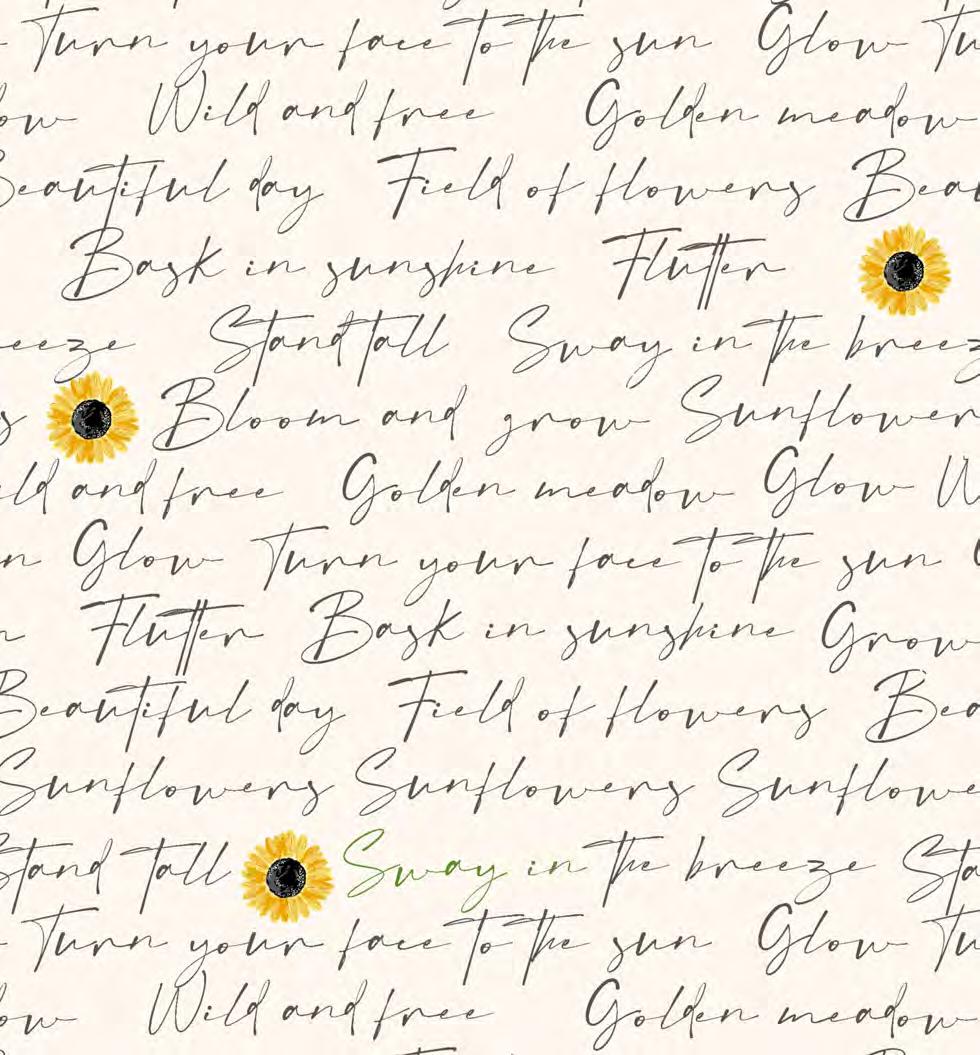 Turn your face to the sun Glow Tu
ow Wild and free Golden meadow
Beautiful day Field of flowers Beau
Bask in sunshine Flutter
reeze Stand tall Sway in the breez
s Bloom and grow Sunflower
ild and free Golden meadow Glow W
n Glow Turn your face to the sun G
n Flutter Bask in sunshine Grow
Beautiful day Field of flowers Bea
Sunflowers Sunflowers Sunflowe
Stand tall Sway in the breeze Sta
Turn your face to the sun Glow Tu
ow Wild and free Golden meadow